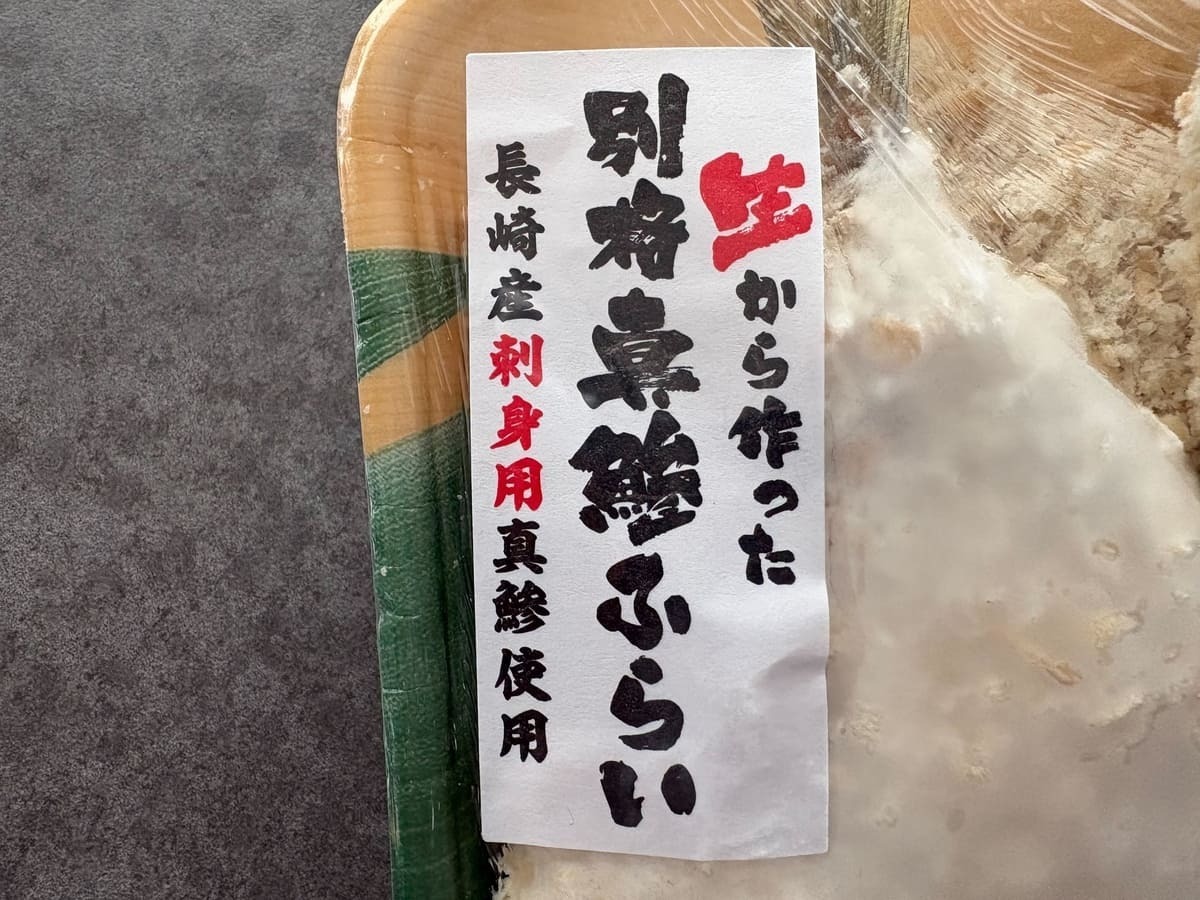 生から作った
別格真鯵ふらい
長崎産刺身用真鯵使用